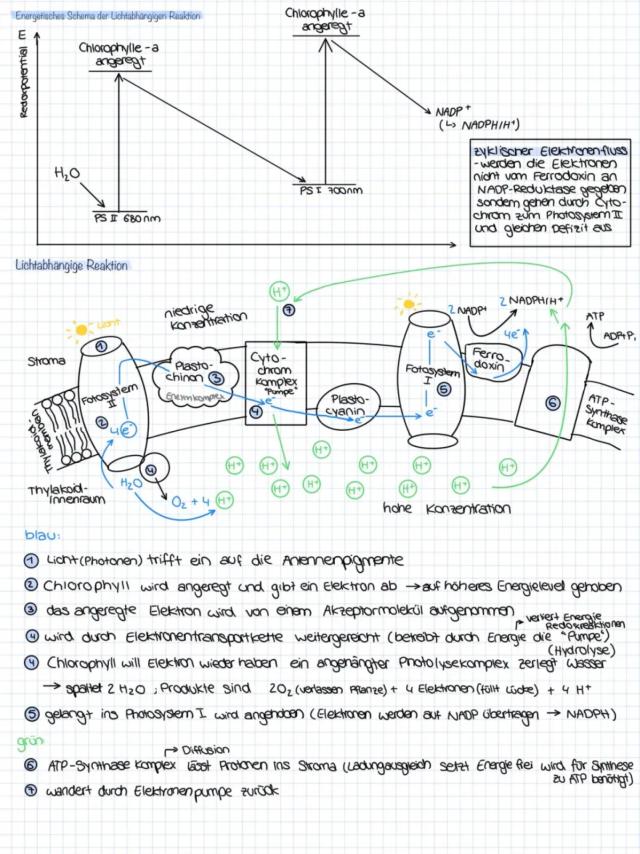 Energetisches Schema der Lichtabhängigen Reaktion
E
Redoxpotential
Chlorophylle -a
angeregt
Chlorophylle -a
angeregt
NADP+
(↳ NADPH/H+)
H₂O
PS II 680nm
PS I 700nm
zyklischer Elektronenfluss
-werden die Elektronen
nicht vom Ferrodoxin an
NADP-Reduktase gegeben
sondern gehen durch Cyto-
chrom zum Photosystem II
und gleichen Defizit aus
Lichtabhängige Reaktion
Licht
niedrige
Konzentration
H+
7
2 NADP+
2 NADPH/H+
ATP
ADP+P
Stroma
1
Fotosystem
II
2
4e⁻
Plasto-
chinon 3
Enzymkomplex
Cyto-
chrom
Komplex
"Pumpe"
4 e⁻
Plasto-
cyanin
e⁻
e⁻
Fotosystem
I 5
e⁻
Ferro-
doxin
4e⁻
6
ATP-
Synthase
Komplex
Thylakoid-
membran
4
Thylakoid-
innenraum
H₂O
O₂ + 4 H+
H+ H+ H+ H+ H+ H+ H+ H+ H+
hohe Konzentration
blau:
1 Licht (Photonen) trifft ein auf die Antennenpigmente
2 Chlorophyll wird angeregt und gibt ein Elektron ab → auf höheres Energielevel gehoben
3 das angeregte Elektron wird von einem Akzeptormolekül aufgenommen
↱ verliert Energie
Redoxreaktionen
4 wird durch Elektronentransportkette weitergereicht (betreibt durch Energie die "Pumpe")
(Hydrolyse)
4 Chlorophyll will Elektron wieder haben ein angehängter Photolysekomplex zerlegt Wasser
→ spaltet 2 H₂O, Produkte sind 2O₂ (verlassen Pflanze) + 4 Elektronen (füllt Lücke) + 4 H+
5 gelangt ins Photosystem I wird angehoben (Elektronen werden auf NADP übertragen → NADPH)
grün:
↱ Diffusion
6 ATP-Synthase Komplex lässt Protonen ins Stroma (Ladungsausgleich setzt Energie frei wird für Synthese
zu ATP benötigt)
7 wandert durch Elektronenpumpe zurück